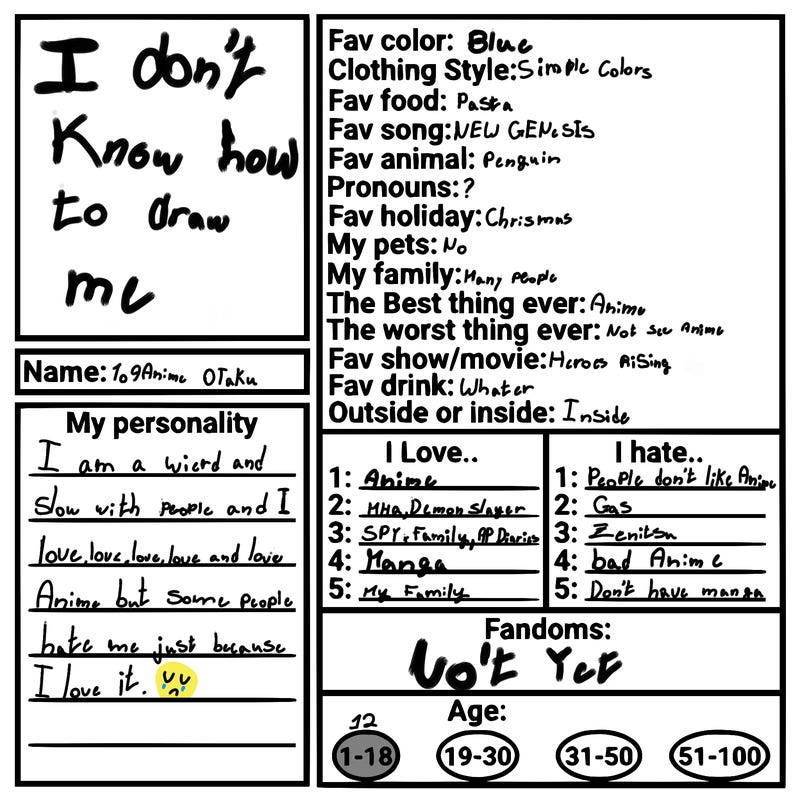 I don't
Know how
to draw
me
Name: 109Anime OTaKu
My personality
I am a wierd and
slow with people and I
love,love,love,love and love
Anime but some people
hate me just because
I love it.
Fav color: Blue
Clothing Style: Simple Colors
Fav food: Pasta
Fav song: NEW GENESIS
Fav animal: Penguin
Pronouns: ?
Fav holiday: Chrismas
My pets: No
My family: Many people
The Best thing ever: Anime
The worst thing ever: Not see Anime
Fav show/movie: Heroes RiSing
Fav drink: Whater
Outside or inside: Inside
I Love..
1: Anime
2: MHA, Demon Slayer
3: SPY x Family, AP Diaries
4: Manga
5: My Family
I hate..
1: People don't like Anime
2: Gas
3: Zenitsu
4: bad Anime
5: Don't have manga
Fandoms:
No't Yet
Age:
12
1-18 19-30 31-50 51-100